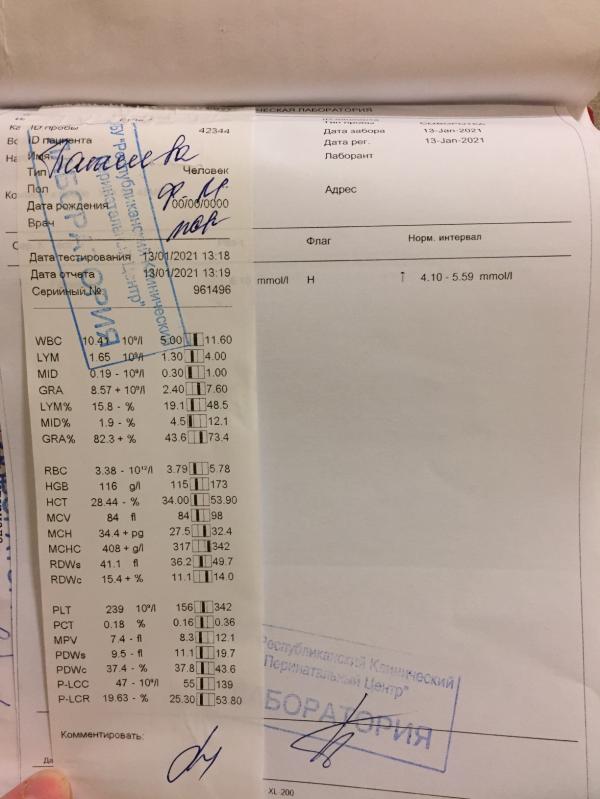 ЧЕСКАЯ ЛАБОРАТОРИЯ
ID пробы 42344
ID пациента
Имя
Тип Человек
Пол
Дата рождения 00/00/0000
Врач
Дата тестирования 13/01/2021 13:18
Дата отчета 13/01/2021 13:19
Серийный № 961496
WBC 10.41 10⁹/l 5.00 11.60
LYM 1.65 10⁹/l 1.30 4.00
MID 0.19 - 10⁹/l 0.30 1.00
GRA 8.57 + 10⁹/l 2.40 7.60
LYM% 15.8 - % 19.1 48.5
MID% 1.9 - % 4.5 12.1
GRA% 82.3 + % 43.6 73.4
RBC 3.38 - 10¹²/l 3.79 5.78
HGB 116 g/l 115 173
HCT 28.44 - % 34.00 53.90
MCV 84 fl 84 98
MCH 34.4 + pg 27.5 32.4
MCHC 408 + g/l 317 342
RDWs 41.1 fl 36.2 49.7
RDWc 15.4 + % 11.1 14.0
PLT 239 10⁹/l 156 342
PCT 0.18 % 0.16 0.36
MPV 7.4 - fl 8.3 12.1
PDWs 9.5 - fl 11.1 19.7
PDWc 37.4 - % 37.8 43.6
P-LCC 47 - 10⁹/l 55 139
P-LCR 19.63 - % 25.30 53.80
Комментировать:
Дата забора 13-Jan-2021
Дата рег. 13-Jan-2021
Лаборант
Адрес
Флаг Норм. интервал
mmol/l H ↑ 4.10 - 5.59 mmol/l
"Республиканский Клинический
Перинатальный Центр"
ЛАБОРАТОРИЯ
Республиканский Клинический
Перинатальный Центр"
ЛАБОРАТОРИЯ
XL-200